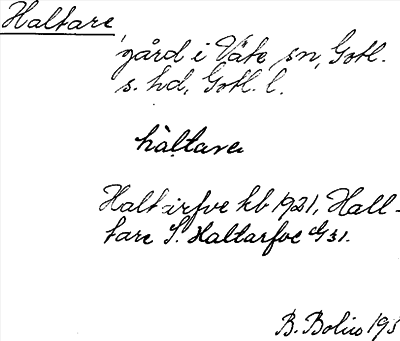 Haltare,
gård i Väte sn, Gotl.
s. hd, Gotl. l.
hàltare
Haltarfve kb 1921, Hall-
tare l. Haltarfve G31.
B. Bolin 193